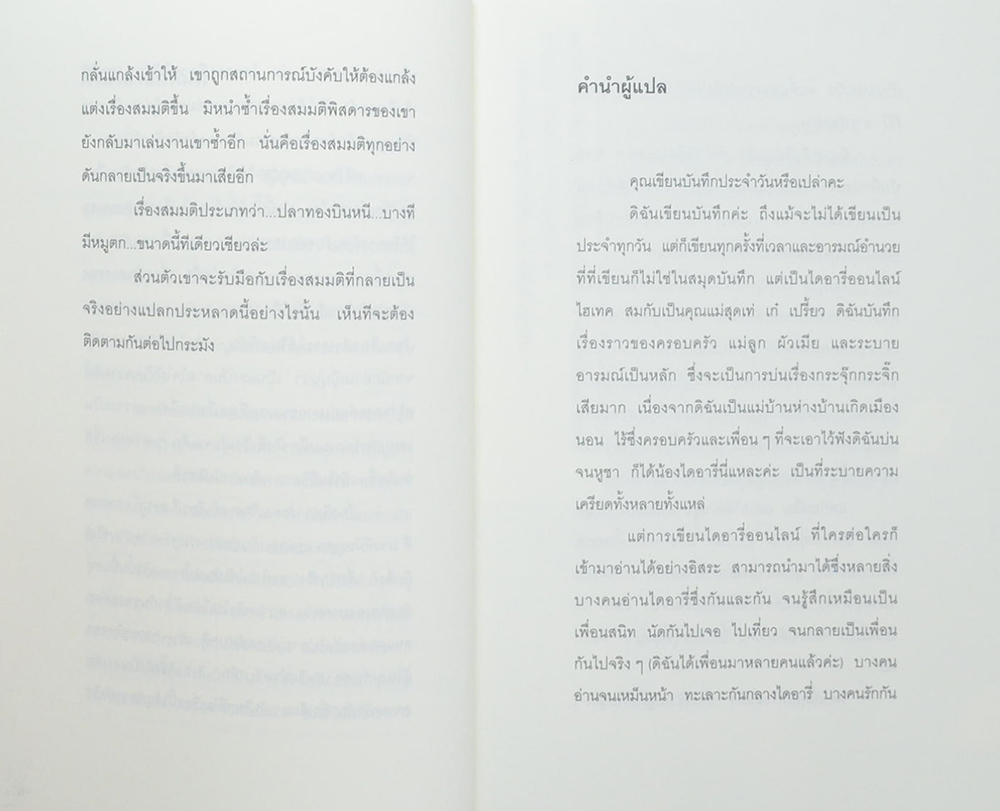 กลั่นแกล้งเข้าให้ เขาถูกสถานการณ์บังคับให้ต้องแกล้ง
แต่งเรื่องสมมติขึ้น มิหนำซ้ำเรื่องสมมติพิสดารของเขา
ยังกลับมาเล่นงานเขาซ้ำอีก นั่นคือเรื่องสมมติทุกอย่าง
ดันกลายเป็นจริงขึ้นมาเสียอีก
เรื่องสมมติประเภทว่า...ปลาทองบินหนี...บางที
มีหมูตก...ขนาดนี้ทีเดียวเชียวล่ะ
ส่วนตัวเขาจะรับมือกับเรื่องสมมติที่กลายเป็น
จริงอย่างแปลกประหลาดนี้อย่างไรนั้น เห็นทีจะต้อง
ติดตามกันต่อไปกระมัง
คำนำผู้แปล
คุณเขียนบันทึกประจำวันหรือเปล่าคะ
ดิฉันเขียนบันทึกค่ะ ถึงแม้จะไม่ได้เขียนเป็น
ประจำทุกวัน แต่ก็เขียนทุกครั้งที่เวลาและอารมณ์อำนวย
ที่ที่เขียนก็ไม่ใช่ในสมุดบันทึก แต่เป็นไดอารี่ออนไลน์
ไฮเทค สมกับเป็นคุณแม่สุดเท่ เก๋ เปรี้ยว ดิฉันบันทึก
เรื่องราวของครอบครัว แม่ลูก ผัวเมีย และระบาย
อารมณ์เป็นหลัก ซึ่งจะเป็นการบ่นเรื่องกระจุ๊กกระจิ๊ก
เสียมาก เนื่องจากดิฉันเป็นแม่บ้านห่างบ้านเกิดเมือง
นอน ไร้ซึ่งครอบครัวและเพื่อน ๆ ที่จะเอาไว้ฟังดิฉันบ่น
จนหูชา ก็ได้น้องไดอารี่นี่แหละค่ะ เป็นที่ระบายความ
เครียดทั้งหลายทั้งแหล่
แต่การเขียนไดอารี่ออนไลน์ ที่ใครต่อใครก็
เข้ามาอ่านได้อย่างอิสระ สามารถนำมาได้ซึ่งหลายสิ่ง
บางคนอ่านไดอารี่ซึ่งกันและกัน จนรู้สึกเหมือนเป็น
เพื่อนสนิท นัดกันไปเจอ ไปเที่ยว จนกลายเป็นเพื่อน
กันไปจริง ๆ (ดิฉันได้เพื่อนมาหลายคนแล้วค่ะ) บางคน
อ่านจนเหม็นหน้า ทะเลาะกันกลางไดอารี่ บางคนรักกัน